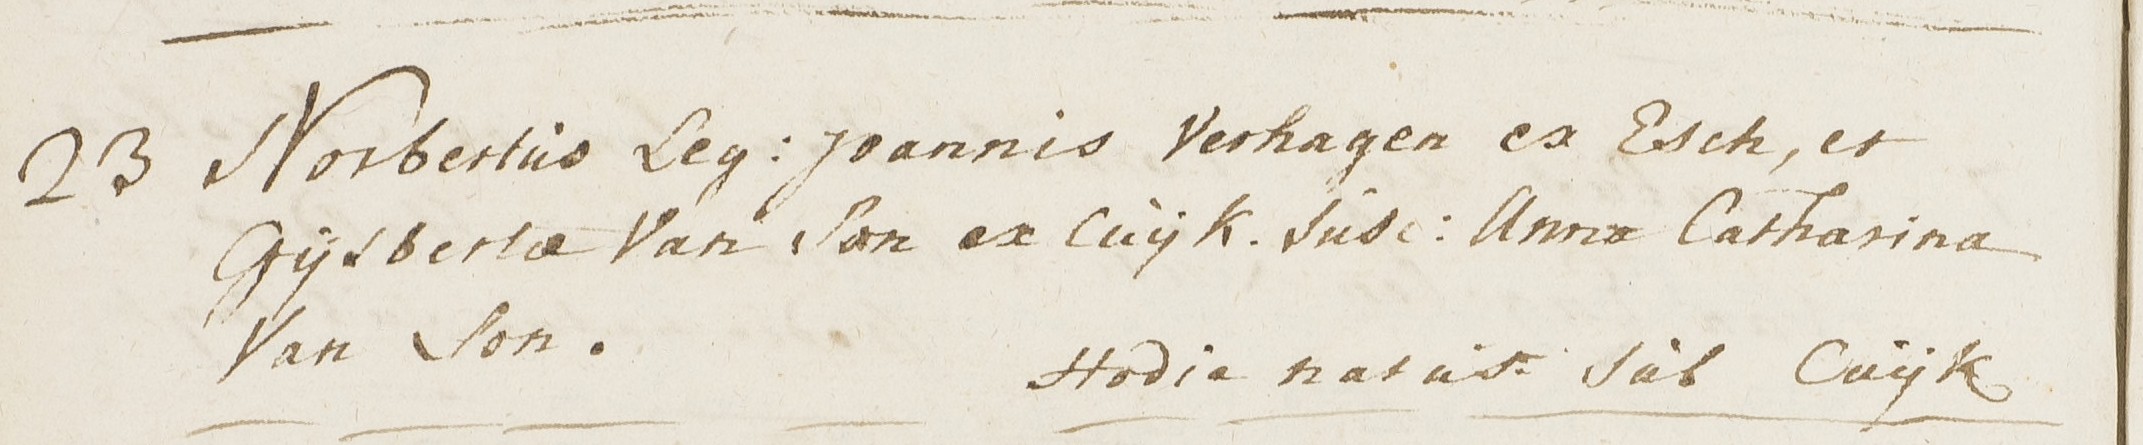 23 Norbertus Leg: Joannis Verhagen ex Esch, et
Gijsbertæ Van Son ex Cuijk. Susc: Anna Catharina
Van Son.
Hodie natus sub Cuijk